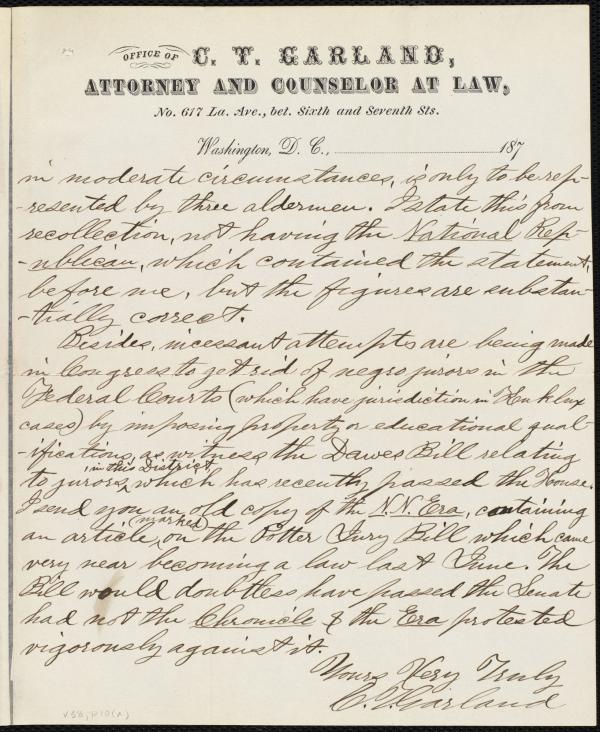 OFFICE OF C. T. GARLAND,
ATTORNEY AND COUNSELOR AT LAW,
No. 617 La. Ave., bet. Sixth and Seventh Sts.
Washington, D. C., 187
in moderate circumstances, is only to be rep-
-resented by three aldermen. I state this from
recollection, not having the National Rep-
-ublican, which contained the statement,
before me, but the figures are substan-
-tially correct.
Besides, incessant attempts are being made
in Congress to get rid of negro jurors in the
Federal Courts (which have jurisdiction in Kuklux
cases) by imposing property or educational qual-
-ifications, as witness the Dawes Bill relating
to jurors, in this District which has recently passed the House.
I send you an old copy of the N.N. Era, containing
an article, (marked) on the Potter Jury Bill which came
very near becoming a law last June. The
Bill would doubtless have passed the Senate
had not the Chronicle & the Era protested
vigorously against it.
Yours Very Truly
C. T. Garland
v.38, p.10(A)